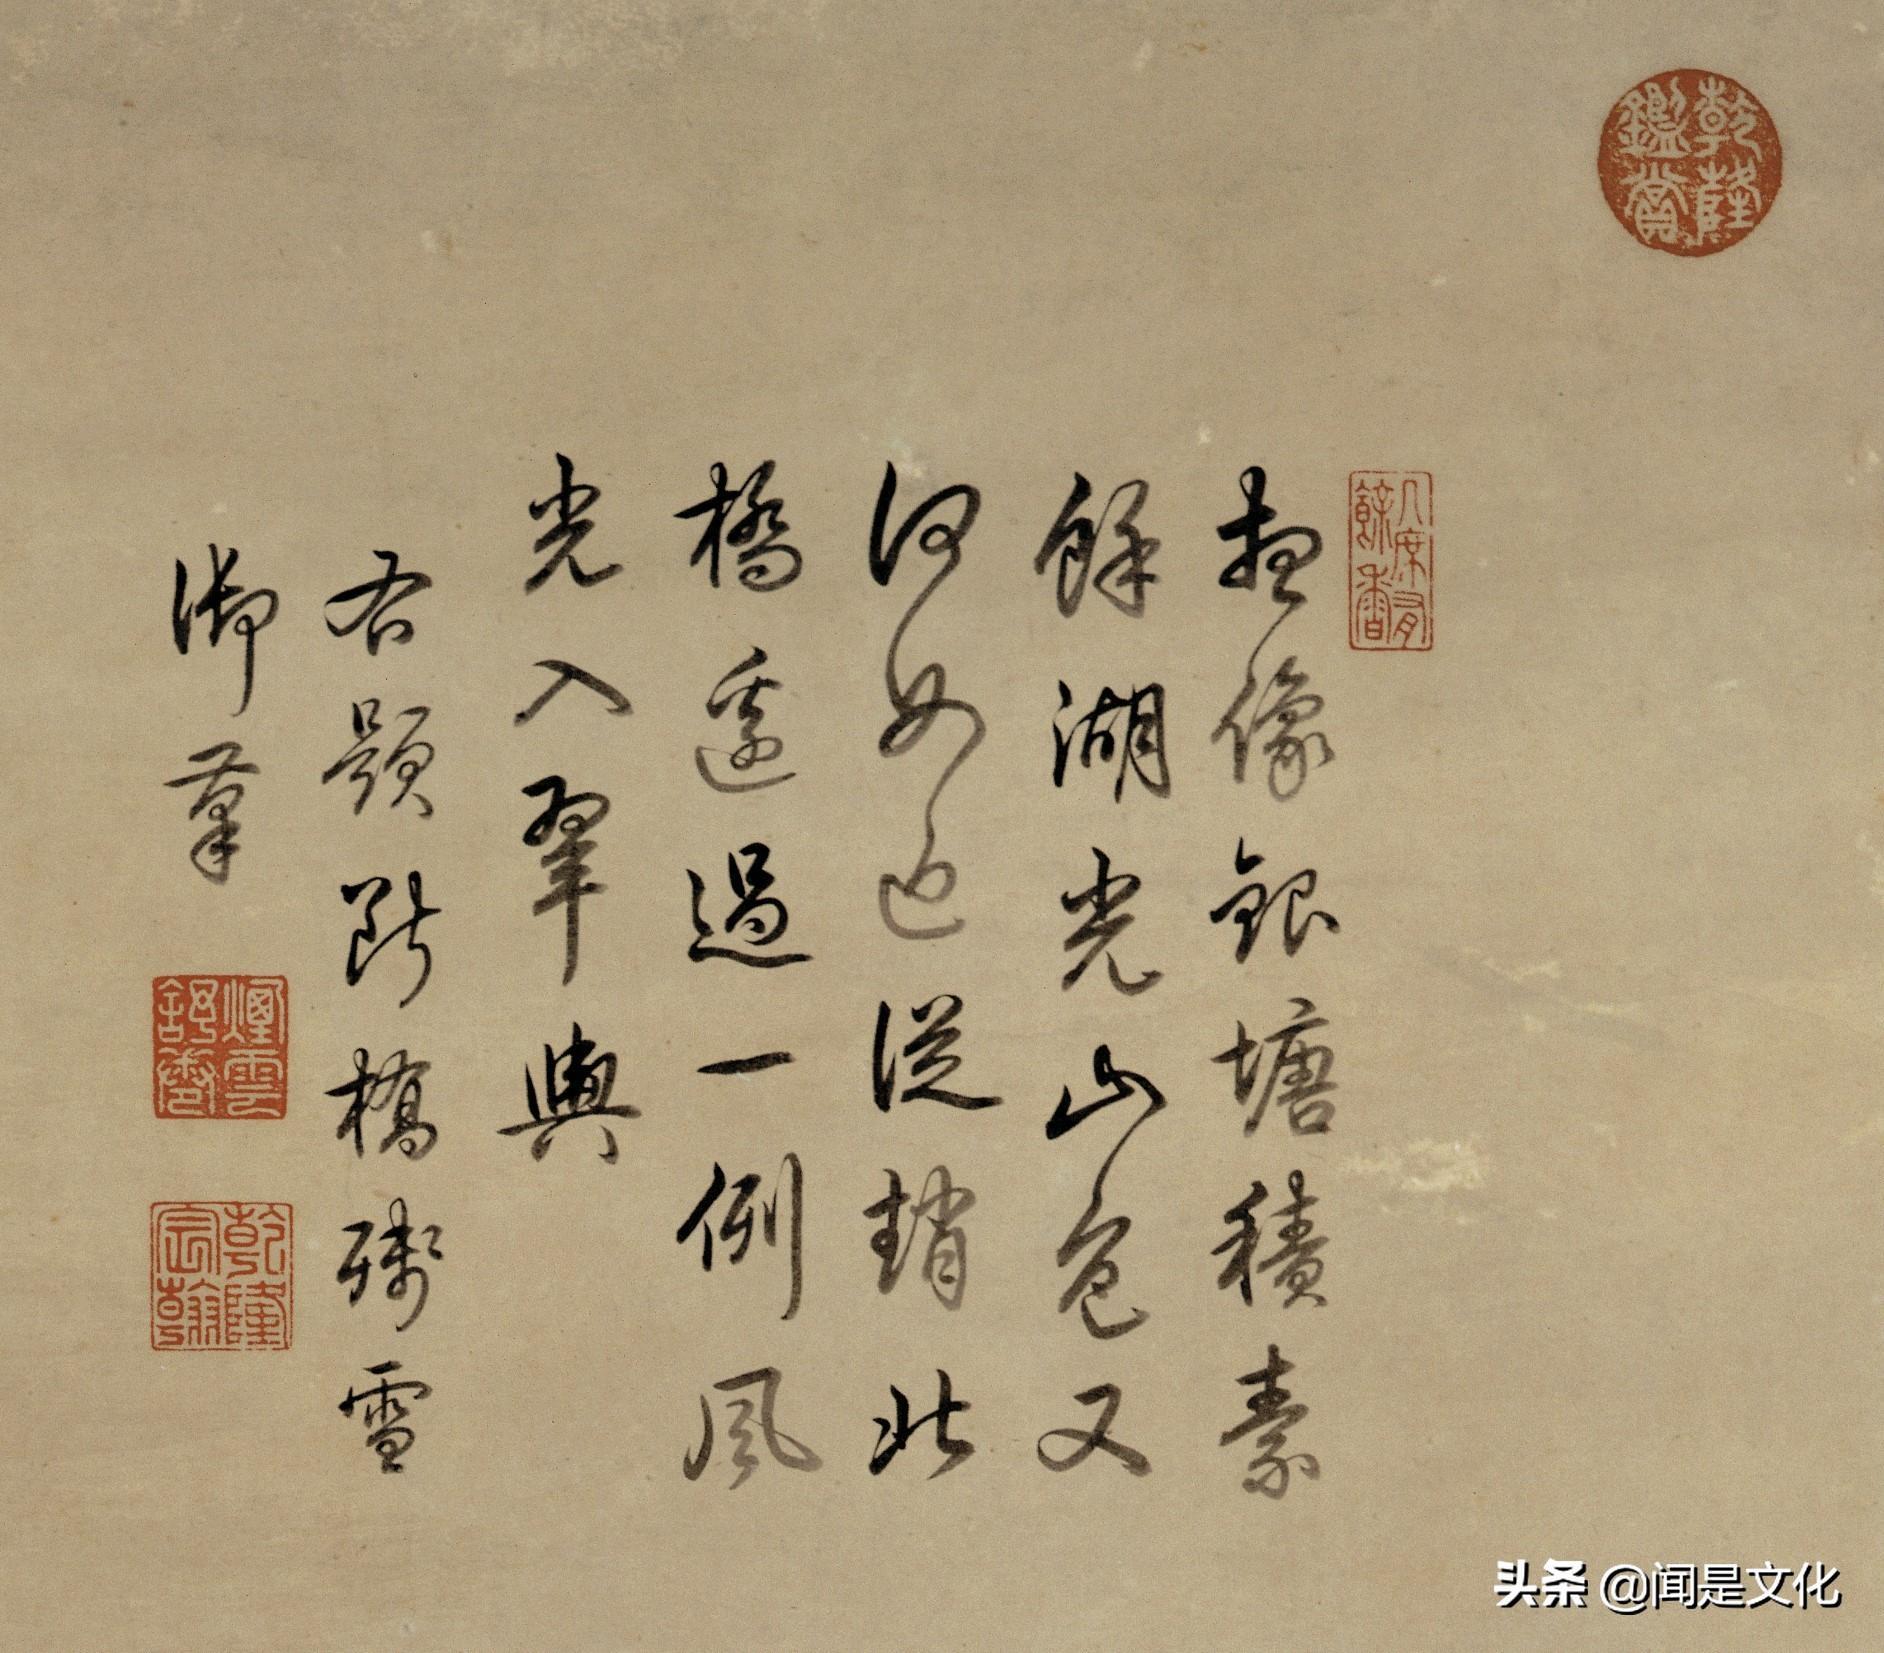 乾隆鑑賞
几席有餘香
想像銀塘積素
餘湖光山色又
何如近從趙北
橋邊過一例風
光入翠輿
右題斷橋殘雪
御筆
煙雲
乾隆宸翰
头条 @闻是文化